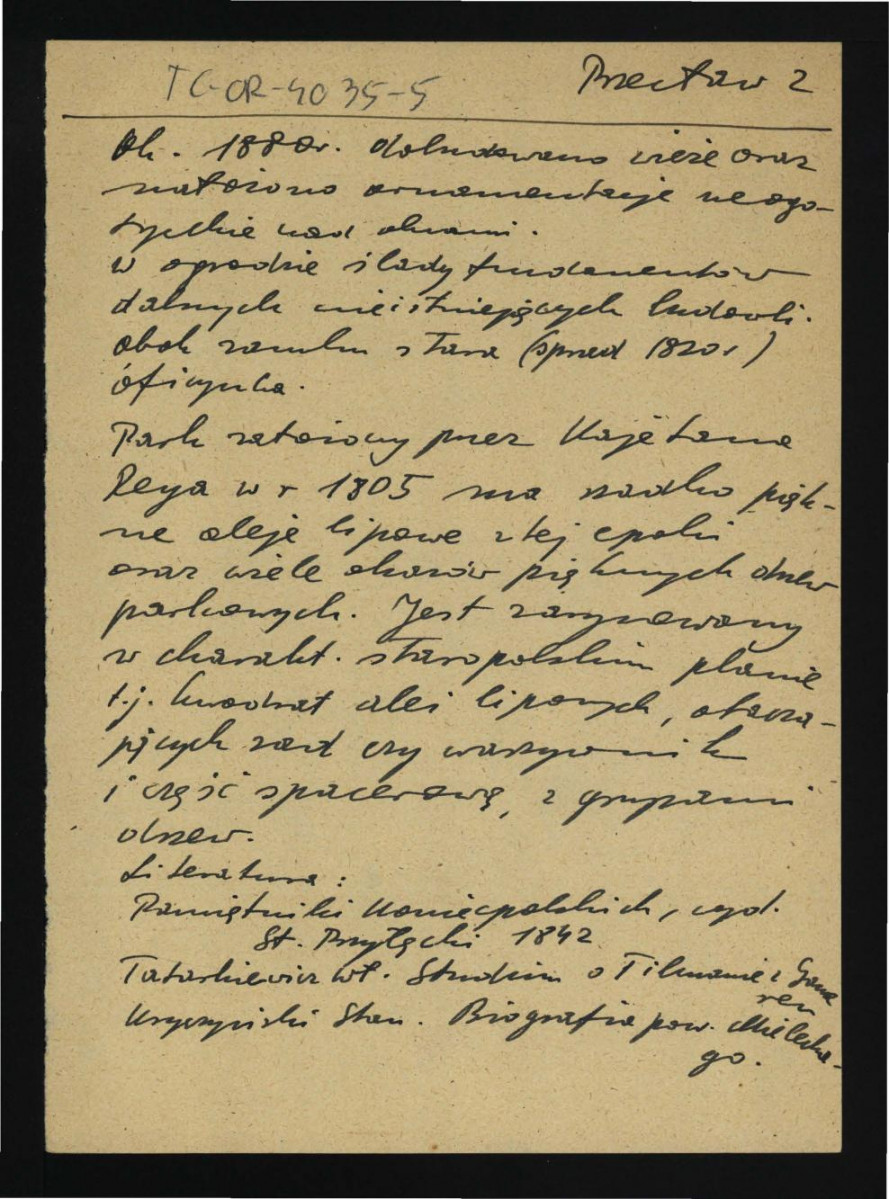 TG-OR-4035-5
Przecław 2
Ok. 1880 r. dobudowano wieże oraz
nałożono ornamentację neogo-
tyckie nad oknami.
W ogrodzie ślady fundamentów
dalszych nieistniejących budowli.
obok zamku stara (sprzed 1820 r)
oficynka.
Park założony przez Kajetana
Reya w r 1805 ma rzadko pięk-
ne aleje lipowe z tej epoki
oraz wiele okazów pięknych drzew
parkowych. Jest zarysowany
w charakt. staropolskim planie
t.j. kwadrat alei lipowych, otacza-
jących sad czy warzywnik
i część spacerową, z grupami
drzew.
Literatura:
Pamiętniki Koniecpolskich, wyd.
St. Przyłęcki 1842
Tatarkiewicz Wł. Studium o Tilmanie z Game
ren
Kryczyński Stan. Biografia pow. Mielecke-
go.